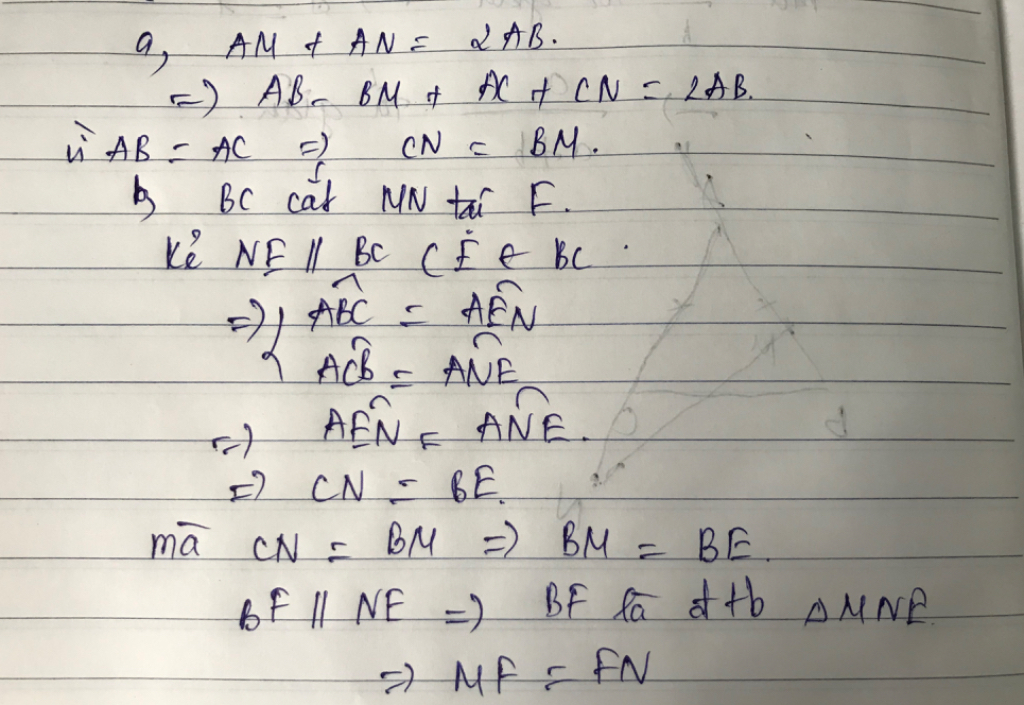 a, AM + AN = 2AB.
=) AB - BM + AC + CN = 2AB.
vì AB = AC =) CN = BM.
b, BC cắt MN tại F.
Kẻ NE // BC ( E ∈ BC
=) { ABC = AEN
ACB = ANE
=) AEN = ANE.
=) CN = BE.
mà CN = BM =) BM = BE.
BF // NE =) BF là đtb △MNE.
=) MF = FN